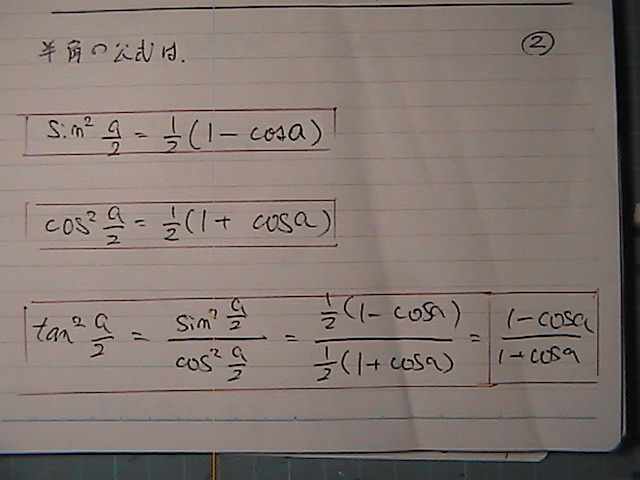 半角の公式は.
②
sin² a/2 = 1/2 (1 - cosa)
cos² a/2 = 1/2 (1 + cosa)
tan² a/2 = sin² a/2 / cos² a/2 = 1/2 (1 - cosa) / 1/2 (1 + cosa) = 1 - cosa / 1 + cosa